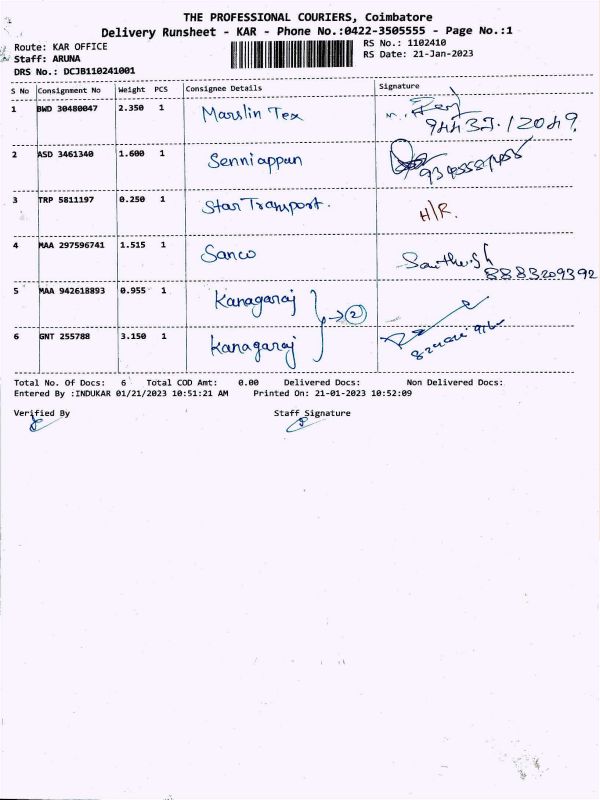 THE PROFESSIONAL COURIERS, Coimbatore
Delivery Runsheet - KAR - Phone No.:0422-3505555 - Page No.:1
Route: KAR OFFICE
Staff: ARUNA
DRS No.: DCJB110241001
RS No.: 1102410
RS Date: 21-Jan-2023
S No Consignment No Weight PCS Consignee Details Signature
1 BWD 30480047 2.350 1 Marslin Tex
2 ASD 3461340 1.600 1 Senniappan
3 TRP 5811197 0.250 1 Star Transport. H/R.
4 MAA 297596741 1.515 1 Sanco Santhosh
8883209392
5 MAA 942618893 0.955 1 Kanagaraj
→ 2
6 GNT 255788 3.150 1 Kanagaraj
Total No. Of Docs: 6 Total COD Amt: 0.00 Delivered Docs: Non Delivered Docs:
Entered By :INDUKAR 01/21/2023 10:51:21 AM Printed On: 21-01-2023 10:52:09
Verified By Staff Signature